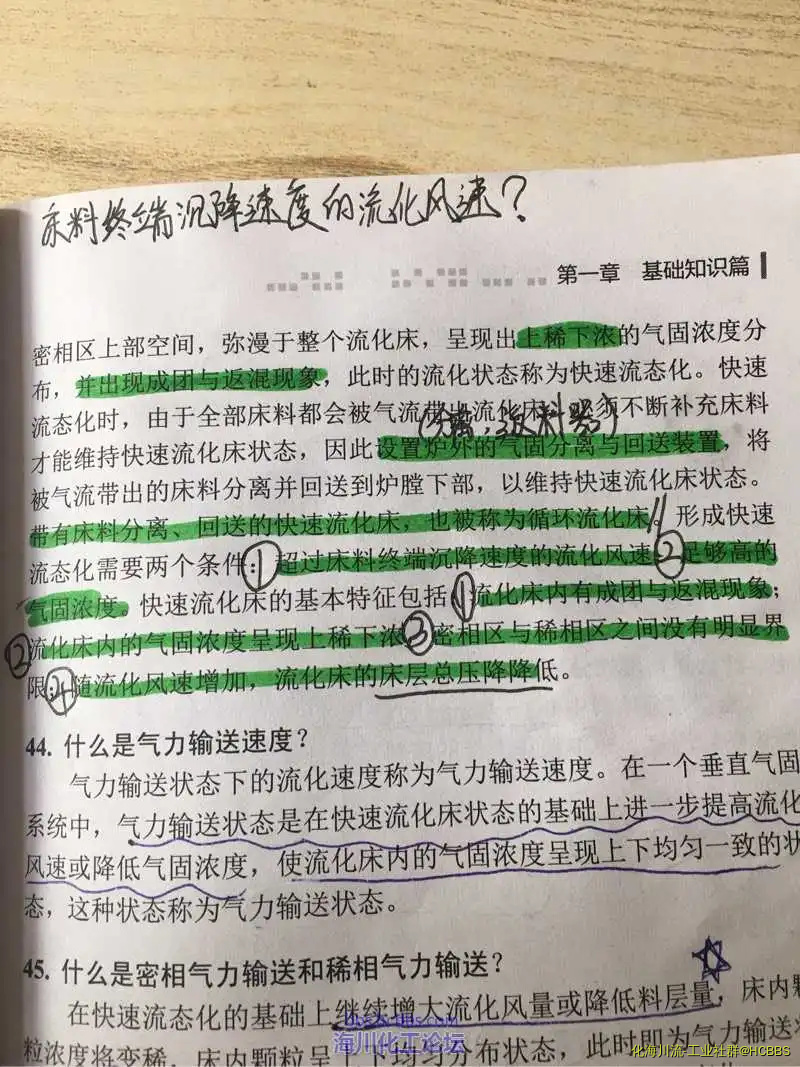 床料终端沉降速度的流化风速？
第一章 基础知识篇
密相区上部空间，弥漫于整个流化床，呈现出上稀下浓的气固浓度分
布，并出现成团与返混现象，此时的流化状态称为快速流态化。快速
流态化时，由于全部床料都会被气流带出流化床，必须不断补充床料
(分离，返料器)
才能维持快速流化床状态，因此设置炉外的气固分离与回送装置，将
被气流带出的床料分离并回送到炉膛下部，以维持快速流化床状态。
带有床料分离、回送的快速流化床，也被称为循环流化床。形成快速
流态化需要两个条件：①超过床料终端沉降速度的流化风速②足够高的
气固浓度。快速流化床的基本特征包括①流化床内有成团与返混现象；
②流化床内的气固浓度呈现上稀下浓③密相区与稀相区之间没有明显界
限；④随流化风速增加，流化床的床层总压降降低。
44. 什么是气力输送速度？
气力输送状态下的流化速度称为气力输送速度。在一个垂直气固
系统中，气力输送状态是在快速流化床状态的基础上进一步提高流化
风速或降低气固浓度，使流化床内的气固浓度呈现上下均匀一致的状
态，这种状态称为气力输送状态。
45. 什么是密相气力输送和稀相气力输送？
在快速流态化的基础上继续增大流化风量或降低料层量，床内颗
粒浓度将变稀，床内颗粒呈上下均匀分布状态，此时即为气力输送
海川化工论坛
化海川流-工业社群@HCBBS